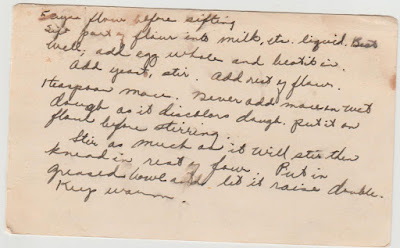 5 cups flour before sifting
Sift part of flour into milk, etc. liquid. Beat
well; add egg whole and beat it in.
Add yeast, stir. Add rest of flour.
1 teaspoon mace. Never add mace on wet
dough as it discolors dough. Put it on
flour before stirring.
Stir as much as it will stir then
knead in rest of flour. Put in
greased bowl and let it raise double.
Keep warm.